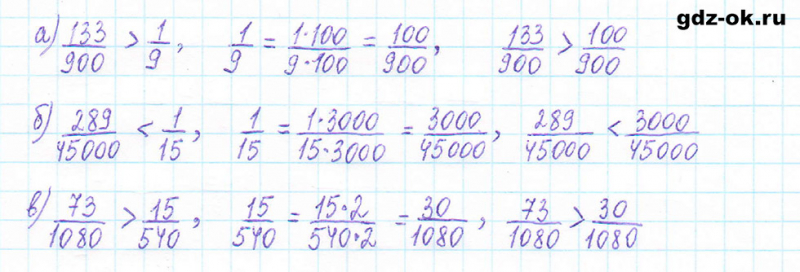 gdz-ok.ru
а) 133/900 > 1/9, 1/9 = 1·100/9·100 = 100/900, 133/900 > 100/900
б) 289/45000 < 1/15, 1/15 = 1·3000/15·3000 = 3000/45000, 289/45000 < 3000/45000
в) 73/1080 > 15/540, 15/540 = 15·2/540·2 = 30/1080, 73/1080 > 30/1080